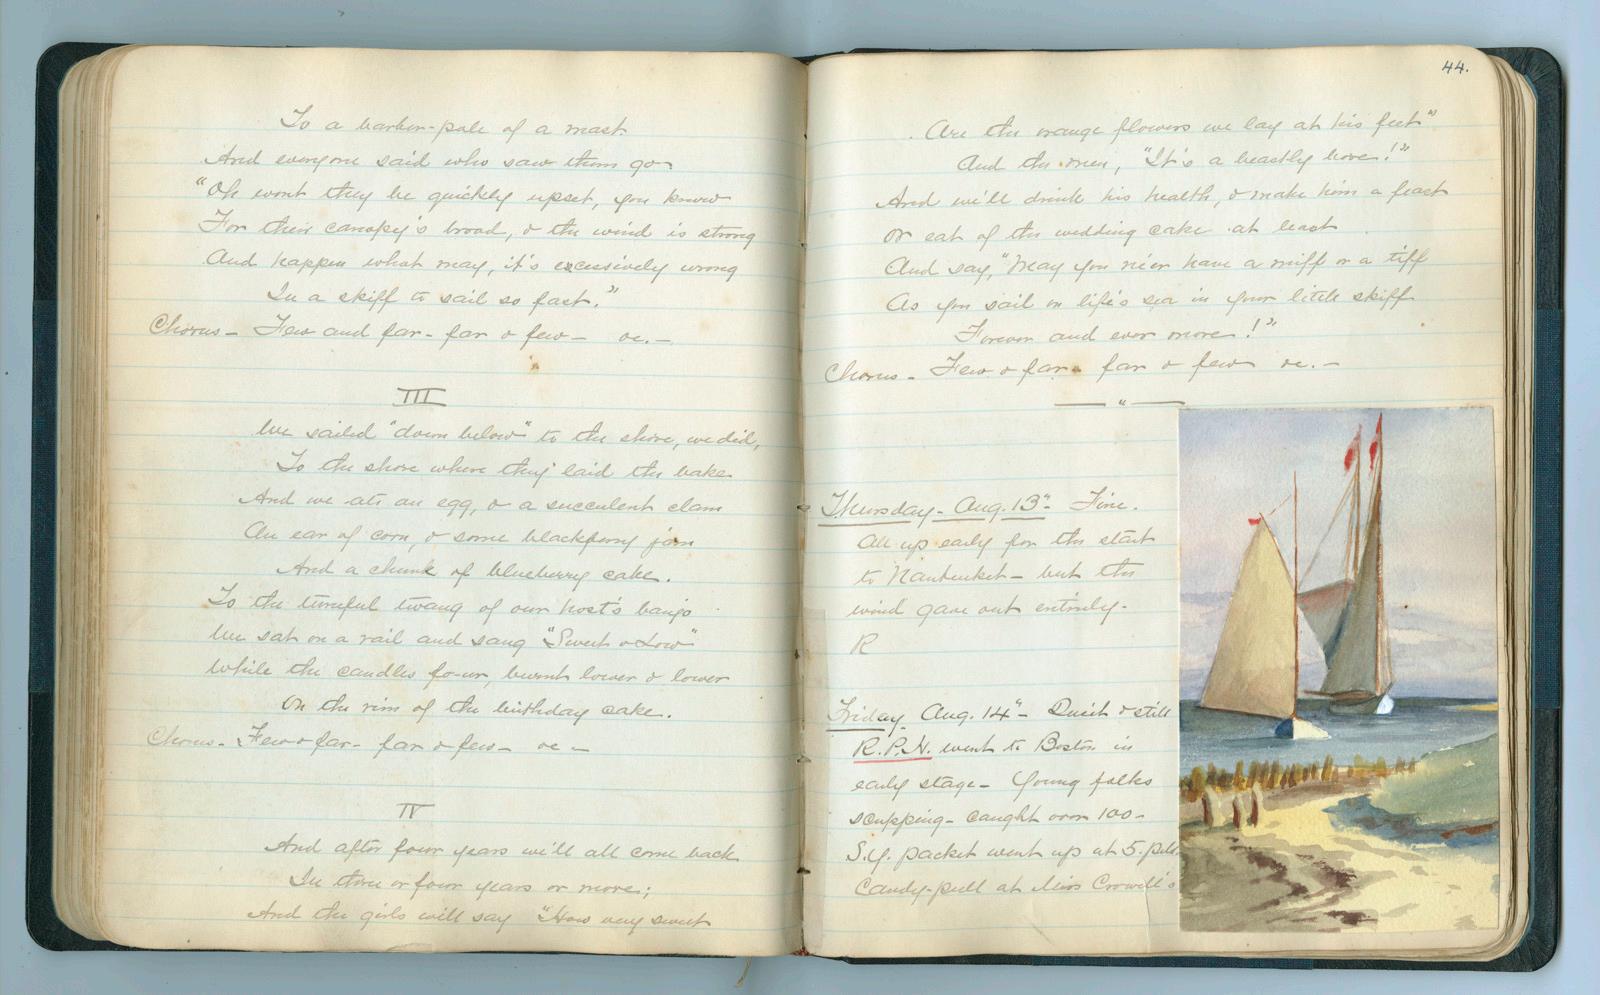 To a barber-pole of a mast
And everyone said who saw them go
"Oh wont they be quickly upset, you know
For their canopy's broad, & the wind is strong
And happen what may, it's excessively wrong
In a skiff to sail so fast."
Chorus - Few and far - far & few - &c. -
III
We sailed "down below" to the shore, we did,
To the shore where they laid the bake
And we ate an egg, & a succulent clam
An ear of corn, & some blackberry jam
And a chunk of blueberry cake.
To the tuneful twang of our host's banjo
We sat on a rail and sang "Sweet & Low"
While the candles fo-ur, burnt lower & lower
On the rim of the birthday cake.
Chorus - Few & far - far & few - &c -
IV
And after four years we'll all come back
In three or four years or more;
And the girls will say "How very sweet
44.
Are the orange flowers we lay at his feet"
And the men, "It's a beastly bore!"
And we'll drink his health, & make him a feast
Or eat of the wedding cake at least
And say, "May you ne'er have a miff or a tiff
As you sail on life's sea in your little skiff
Forever and ever more!"
Chorus - Few & far - far & few &c. -
Thursday - Aug. 13" Fine.
All up early for the start
to Nantucket - but the
wind gave out entirely -
R
Friday Aug. 14" - Quiet & still
R.P.H. went to Boston in
early stage - Young folks
scupping - caught over 100 -
S.Y. packet went up at 5.
Candy-pull at Miss Crowell's